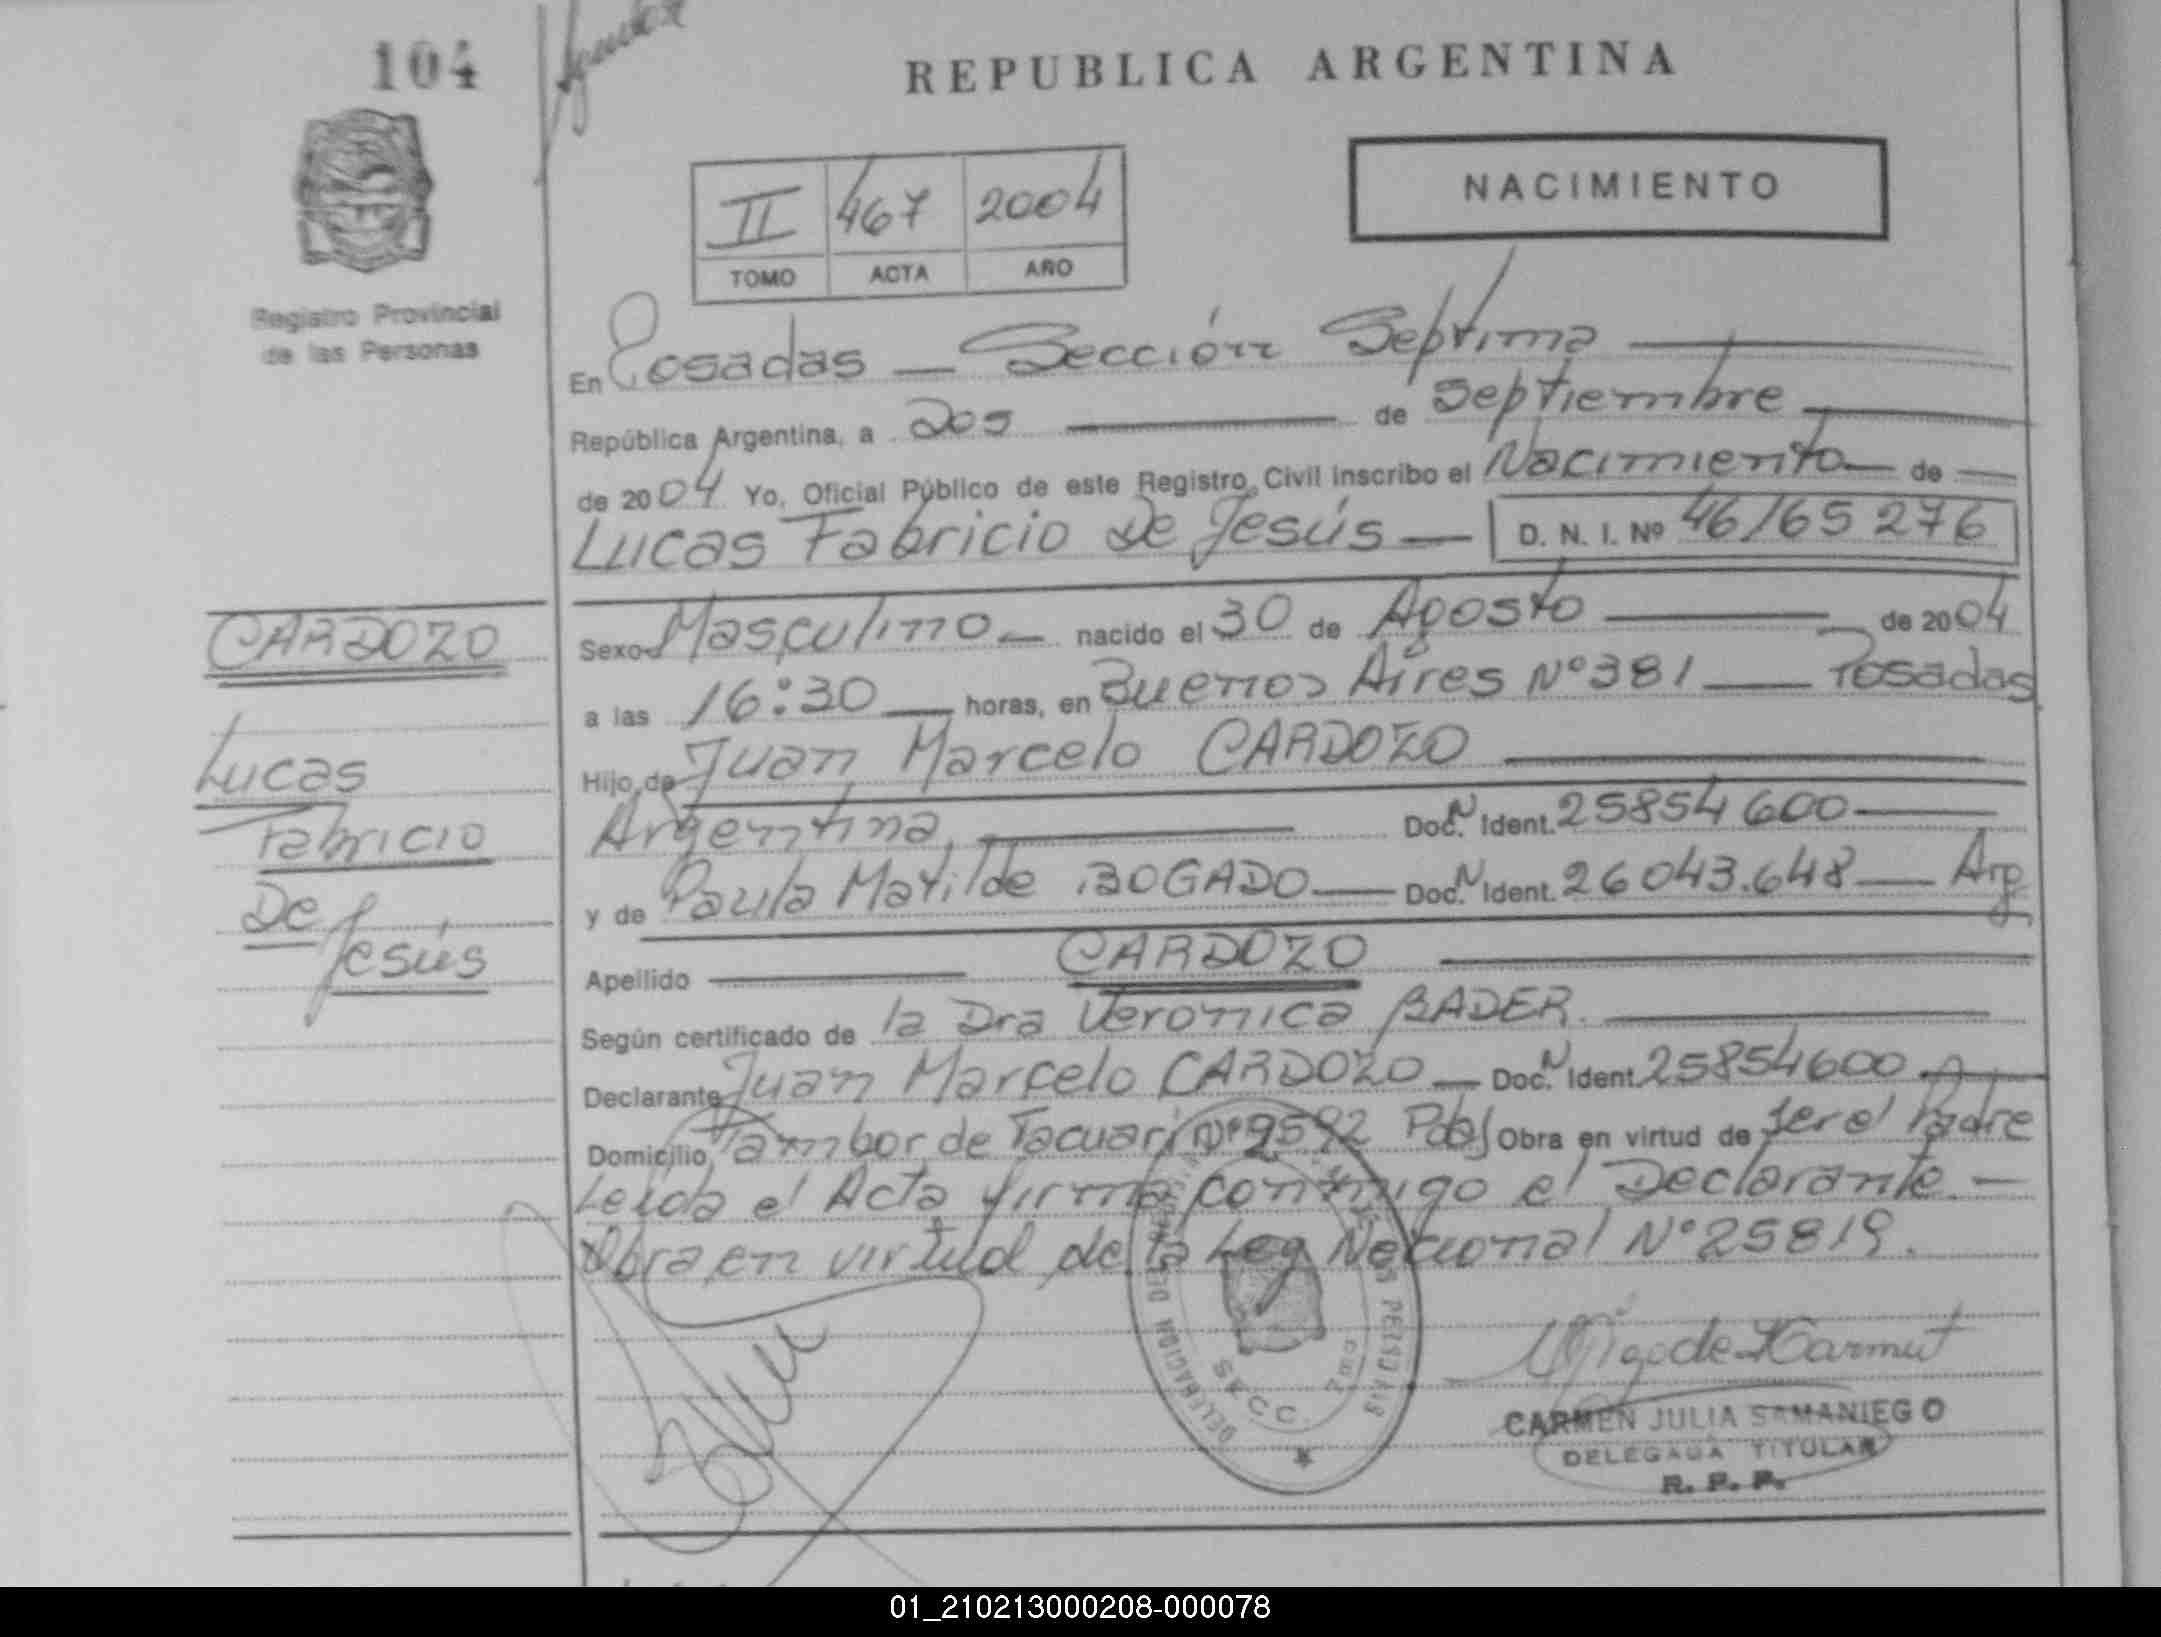 104
REPUBLICA ARGENTINA
NACIMIENTO
II 467 2004
TOMO ACTA AÑO
Registro Provincial
de las Personas
En Posadas — Sección Septima
República Argentina, a Dos de Septiembre
de 2004 Yo, Oficial Público de este Registro Civil inscribo el Nacimiento de
Lucas Fabricio De Jesús — D. N. I. Nº 46165276
CARDOZO
Lucas
Fabricio
De
Jesús
Sexo Masculino nacido el 30 de Agosto de 2004
a las 16:30 horas, en Buenos Aires Nº 381 — Posadas
Hijo de Juan Marcelo CARDOZO
Argentina Doc. N Ident. 25854600
y de Paula Matilde BOGADO — Doc. N Ident. 26043.648 — Arg
Apellido CARDOZO
Según certificado de la Dra Veronica BADER.
Declarante Juan Marcelo CARDOZO — Doc. N Ident. 25854600
Domicilio Tambor de Tacuari Nº 9592 Pdas Obra en virtud de ser el Padre
Leida el Acta firma conmigo el Declarante. —
Obra en virtud de la Ley Nacional Nº 25819.
DELEGACION
SECC.
CARMEN JULIA SAMANIEGO
DELEGADA TITULAR
R. P. P.
01_210213000208-000078